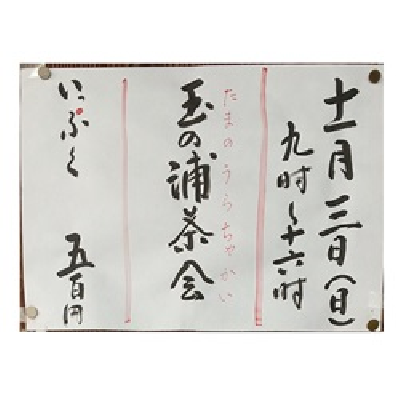 十一月三日(日)
九時〜十六時
たまのうらちゃかい
玉の浦茶会
いっぷく 五百円